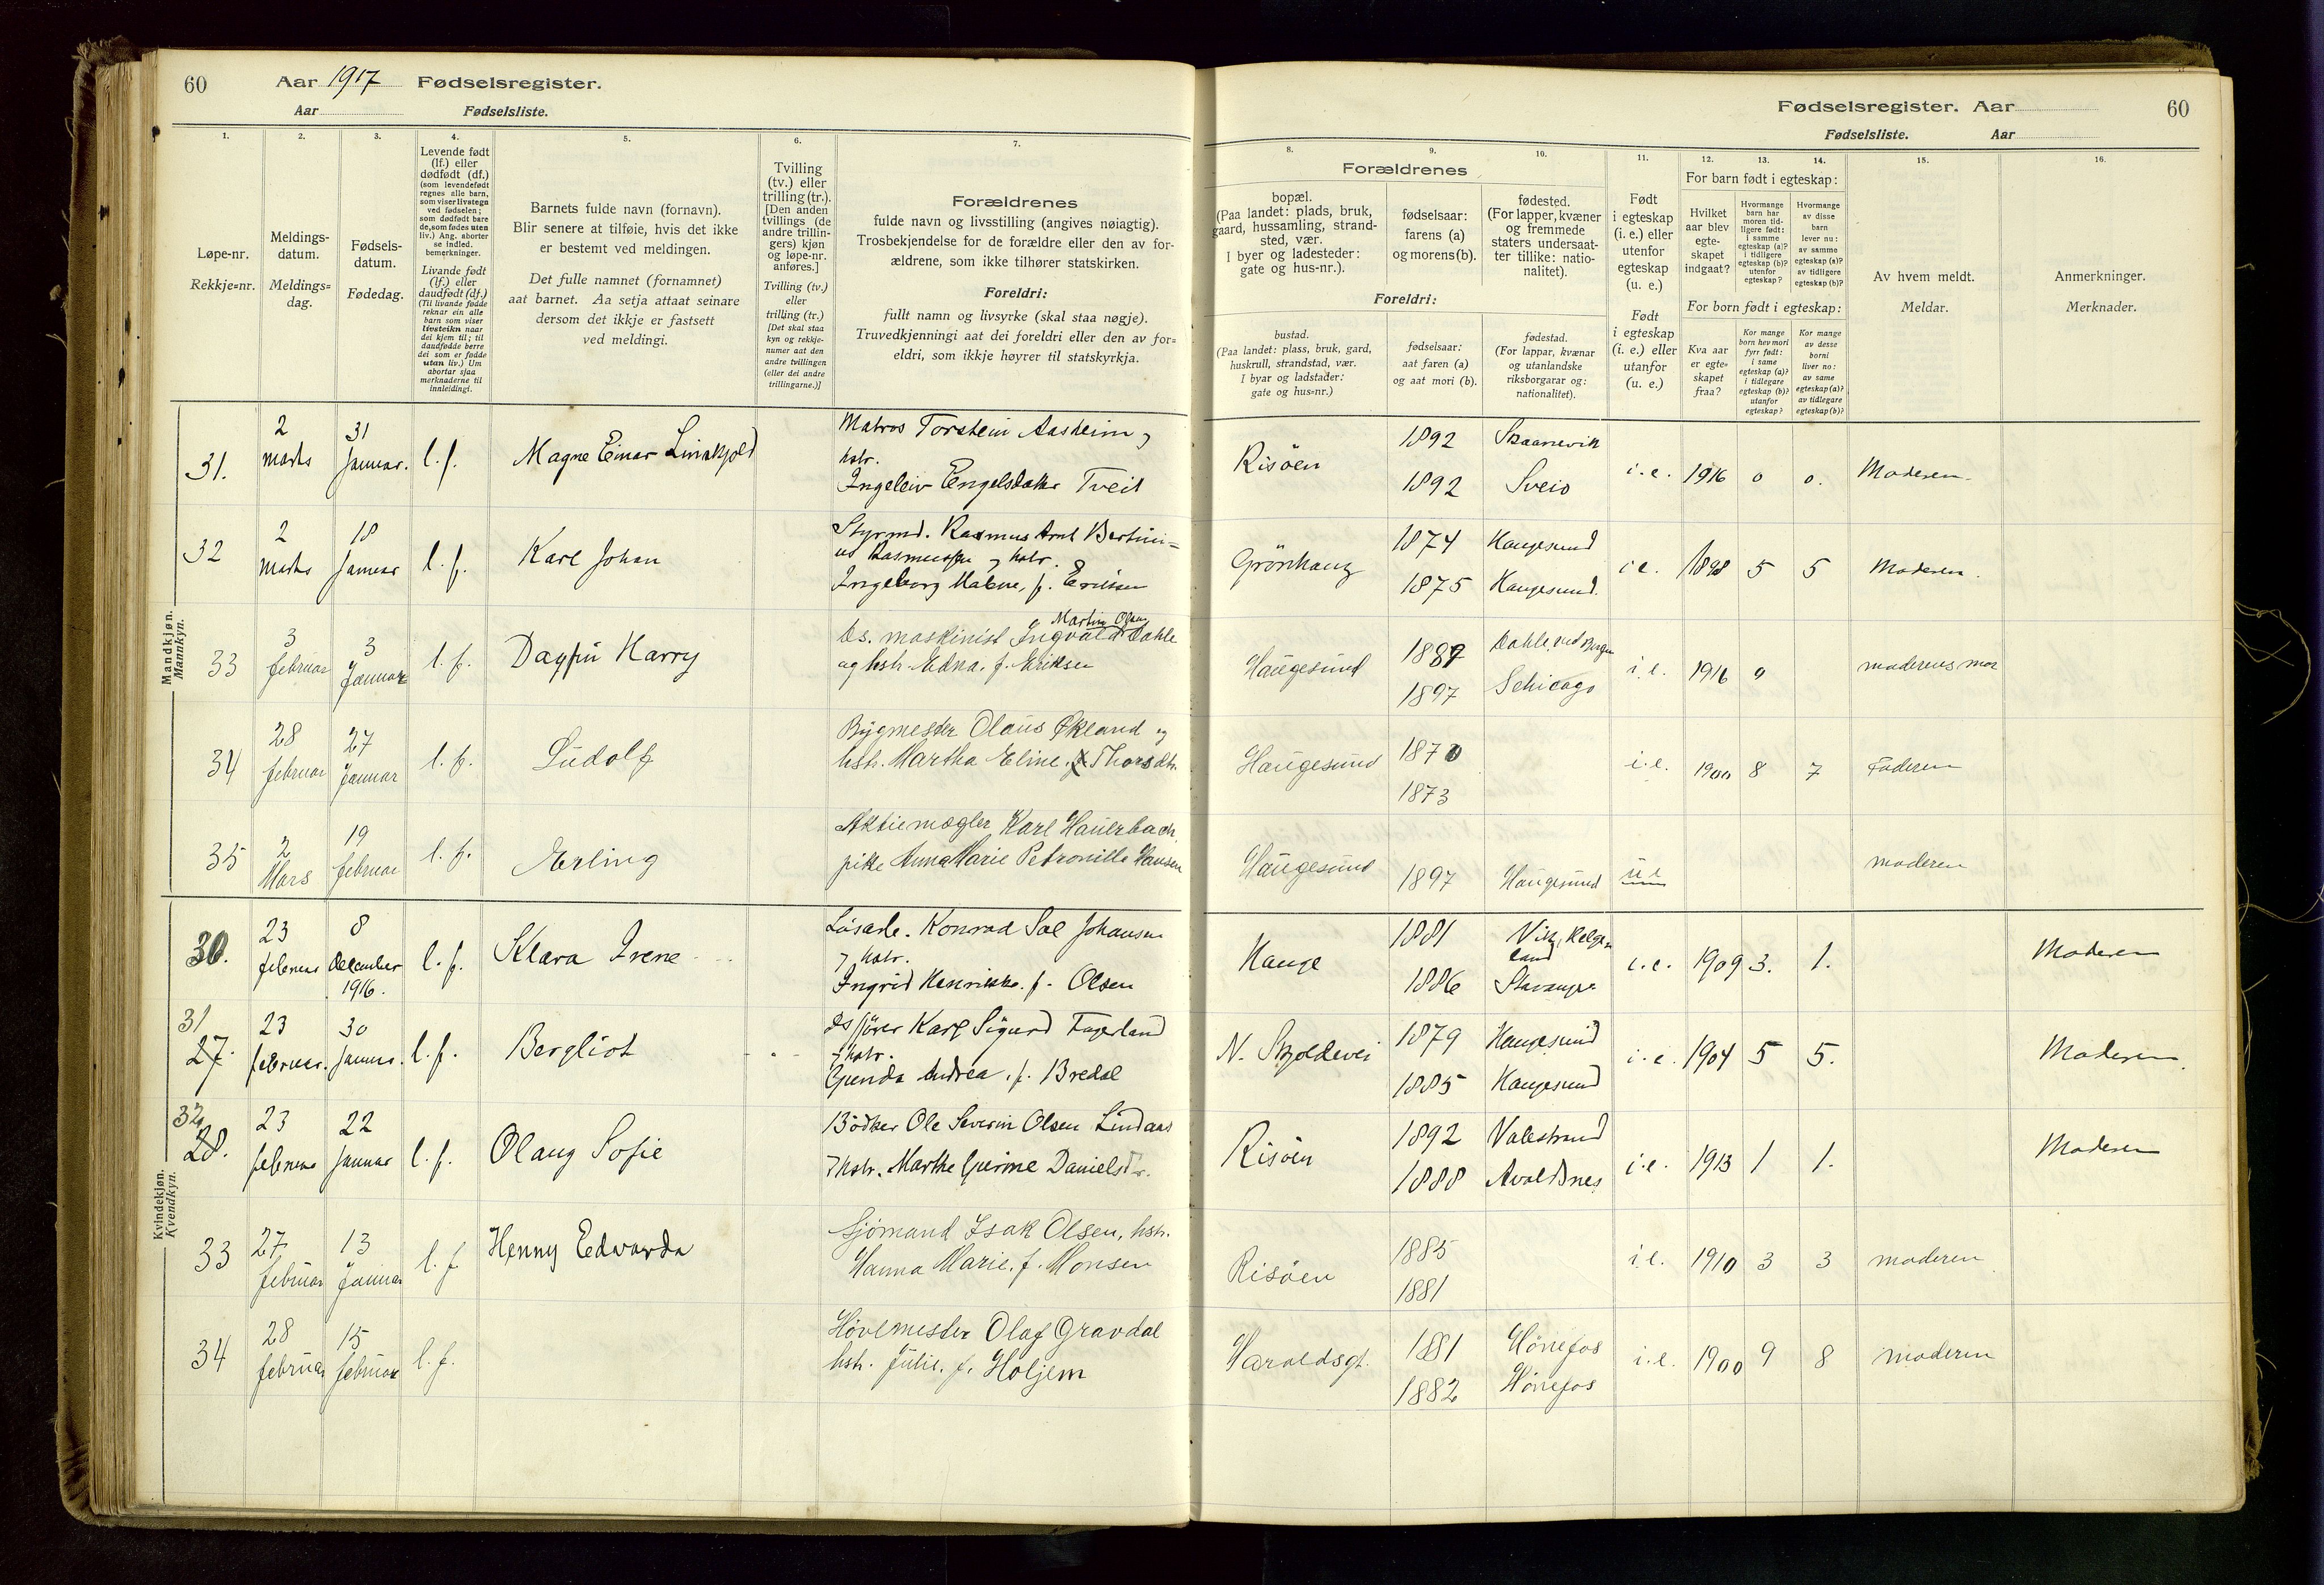 60 Aar 1917 Fødselsregister.
Aar Fødselsliste.
1. 2. 3. 4. 5. 6. 7.
Løpe-nr.
Rekkje=nr.
Meldings-
datum.
Meldings=
dag.
Fødsels-
datum.
Fødedag.
Levende født
(lf.) eller
dødfødt (df.)
(som levendefødt
regnes alle barn,
som viser livstegn
ved fødselen;
som dødfødt bare
de, som fødes uten
liv.) Ang. aborter
se indled.
bemerkninger.
Livande født
(lf.) eller
daudfødt (df.)
(Til livande fødde
reknar ein alle
barn som viser
livsteikn naar
dei kjem til; til
daudfødde berre
dei som er fødde
utan liv.) Um
abortar sjaa
merknaderne til
innleidingi.
Barnets fulde navn (fornavn).
Blir senere at tilføie, hvis det ikke
er bestemt ved meldingen.
Det fulle namnet (fornamnet)
aat barnet. Aa setja attaat seinare
dersom det ikkje er fastsett
ved meldingi.
Tvilling
(tv.) eller
trilling (tr.).
[Den anden
tvillings (de
andre trillin-
gers) kjøn
og løpe-nr.
anføres.]
Tvilling (tv.)
eller
trilling (tr.)
[Det skal staa
kyn og rekkje-
numer aat den
andre tvillingen
(eller dei andre
trillingarne.)]
Forældrenes
fulde navn og livsstilling (angives nøiagtig).
Trosbekjendelse for de forældre eller den av for-
ældrene, som ikke tilhører statskirken.
Foreldri:
fullt namn og livsyrke (skal staa nøgje).
Truvedkjenningi aat dei foreldri eller den av for=
eldri, som ikkje høyrer til statskyrkja.
Mandkjøn.
Mannkyn.
31. 2 marts 31 Januar. l. f. Magne Einar
Matros Torstein Aasheim og
hstr.
Ingeleiv Engelsdatter Tveit
32 2 marts 18 Januar l. f. Karl Johan
Styrmd. Rasmus Arnt Bertini=
us Rasmussen og hstr.
Ingeborg Malene, f. Eriksen
33 3 februar 3 Januar l. f. Dagfin Harry
Martin Olsen
Ds. maskinist Ingvald Dahle
og hstr. Edna. f. Eriksen
34 28 februar 27 Januar l. f. Ludolf
Bygmester Olaus Økland og
hstr. Martha Eline. Thorsdtr.
35 2 Mars 19 februar l. f. Erling
Aktiemægler Karl Hauerbach,
pike Anna Marie Petronille Hansen
Kvindekjøn.
Kvendkyn.
30. 23 februar 8 December 1916. l. f. Klara Irene
Løsarb. Konrad Sol Johansen
og hstr.
Ingrid Henrikke. f. Olsen
31 27. 23 februar. 30 Januar. l. f. Bergliot
Ds fører Karl Sigurd Fagerland
og hstr.
Gunda Andrea. f. Bredal
32 28. 23 februar 22 Januar l. f. Olaug Sofie
Bödker Ole Severin Olsen Lindaas
og hstr. Marthe Gurine Danielsdtr.
33 27 februar 13 Januar l. f. Henny Edvarda
Sjömand Isak Olsen, hstr.
Hanna Marie. f. Monsen
34 28 februar 15 februar l. f.
Høvlmester Olaf Gravdal
hstr. Julie. f. Holjem
Fødselsregister. Aar 60
Fødselsliste. Aar
8. 9. 10. 11. 12. 13. 14. 15. 16.
Forældrenes
bopæl.
(Paa landet: plads, bruk,
gaard, hussamling, strand-
sted, vær.
I byer og ladesteder:
gate og hus-nr.).
fødselsaar:
farens (a)
og morens (b).
fødested.
(For lapper, kvæner
og fremmede
staters undersaat-
ter tillike: natio-
nalitet).
Foreldri:
bustad.
(Paa landet: plass, bruk, gard,
huskrull, strandstad, vær.
I byar og ladstader:
gate og hus=nr.)
fødselsaar:
aat faren (a)
og aat mori (b).
fødestad.
(For lappar, kvænar
og utanlandske
riksborgarar og:
nationalitet).
Født
i egteskap
(i. e.) eller
utenfor
egteskap
(u. e.)
Født
i egteskap
(i. e.) eller
utanfor
egteskap
(u. e.)
For barn født i egteskap:
Hvilket
aar blev
egte-
skapet
indgaat?
Hvormange
barn har
moren tid-
ligere født:
i samme
egteskap (a)?
i tidligere
egteskap (b)?
utenfor
egteskap?
Hvormange
av disse
barn
lever nu:
av samme
egteskap (a)?
av tidligere
egteskap (b)?
For born født i egteskap:
Kva aar
er egte=
skapet
fraa?
Kor mange
born hev mori
fyrr født:
i same
egteskap (a)?
i tidlegare
egteskap (b)?
utanfor
egteskap?
Kor mange
av desse
borni
liver no:
av same
egteskap (a)?
av tidlegare
egteskap (b)?
Av hvem meldt.
Meldar.
Anmerkninger.
Merknader.
Risöen 1892 Skaanevik
1892 Sveio i. e. 1916 0 0. Moderen.
Grönhaug 1874 Haugesund
1875 Haugesund. i e. 1898 5 5 Moderen.
Haugesund 1889 Dahle ved Bergen
1897 Schicago i. e. 1916 0 moderens mor
Haugesund 1870
1873 i. e. 1900 8 7 Faderen
Haugesund 1897 Haugesund u e moderen
Hauge 1881 Vik, Helge
land
1886 Stavanger i. e. 1909 3. 1. Moderen
N. Skjoldevei 1879 Haugesund
1885 Haugesund i. e. 1904 5 5. Moderen
Risöen 1892 Valestrand
1888 Avaldsnes i. e. 1913 1 1. Moderen
Risöen 1885
1881 i. e. 1910 3 3 moderen
Haraldsgt. 1881 Hönefos
1882 Hönefos i. e. 1900 9 8 moderen